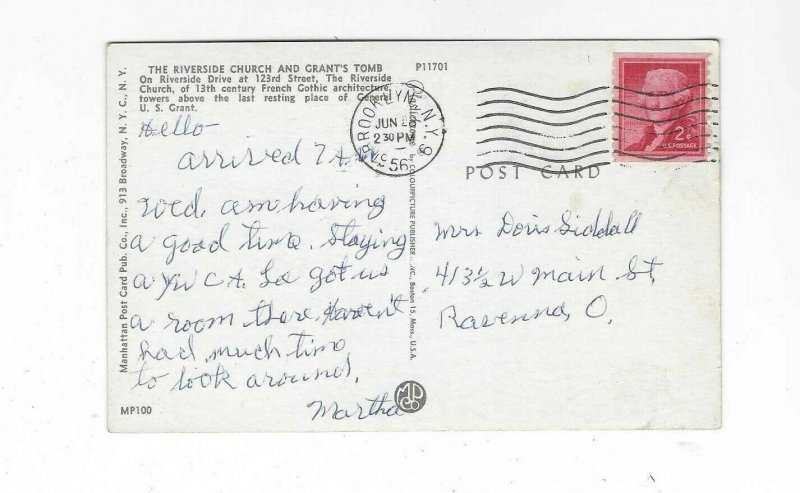 THE RIVERSIDE CHURCH AND GRANT'S TOMB
On Riverside Drive at 123rd Street, The Riverside
Church, of 13th century French Gothic architecture,
towers above the last resting place of General
U. S. Grant.
P11701
Hello-
arrived 7 A.M.
Wed. am having
a good time. Staying
a YWCA. Lo got us
a room there. Haven't
had much time
to look around.
Martha
MP100
Manhattan Post Card Pub. Co., Inc., 913 Broadway, N. Y. C., N. Y.
by COLOURPICTURE PUBLISHERS, INC., Boston 15, Mass., U.S.A.
MD
CO
BROOKLYN, N.Y.
JUN
2 30 PM
1956
2¢
U.S. POSTAGE
POST CARD
Mrs Doris Siddall
413½ W Main St.
Ravenna, O.